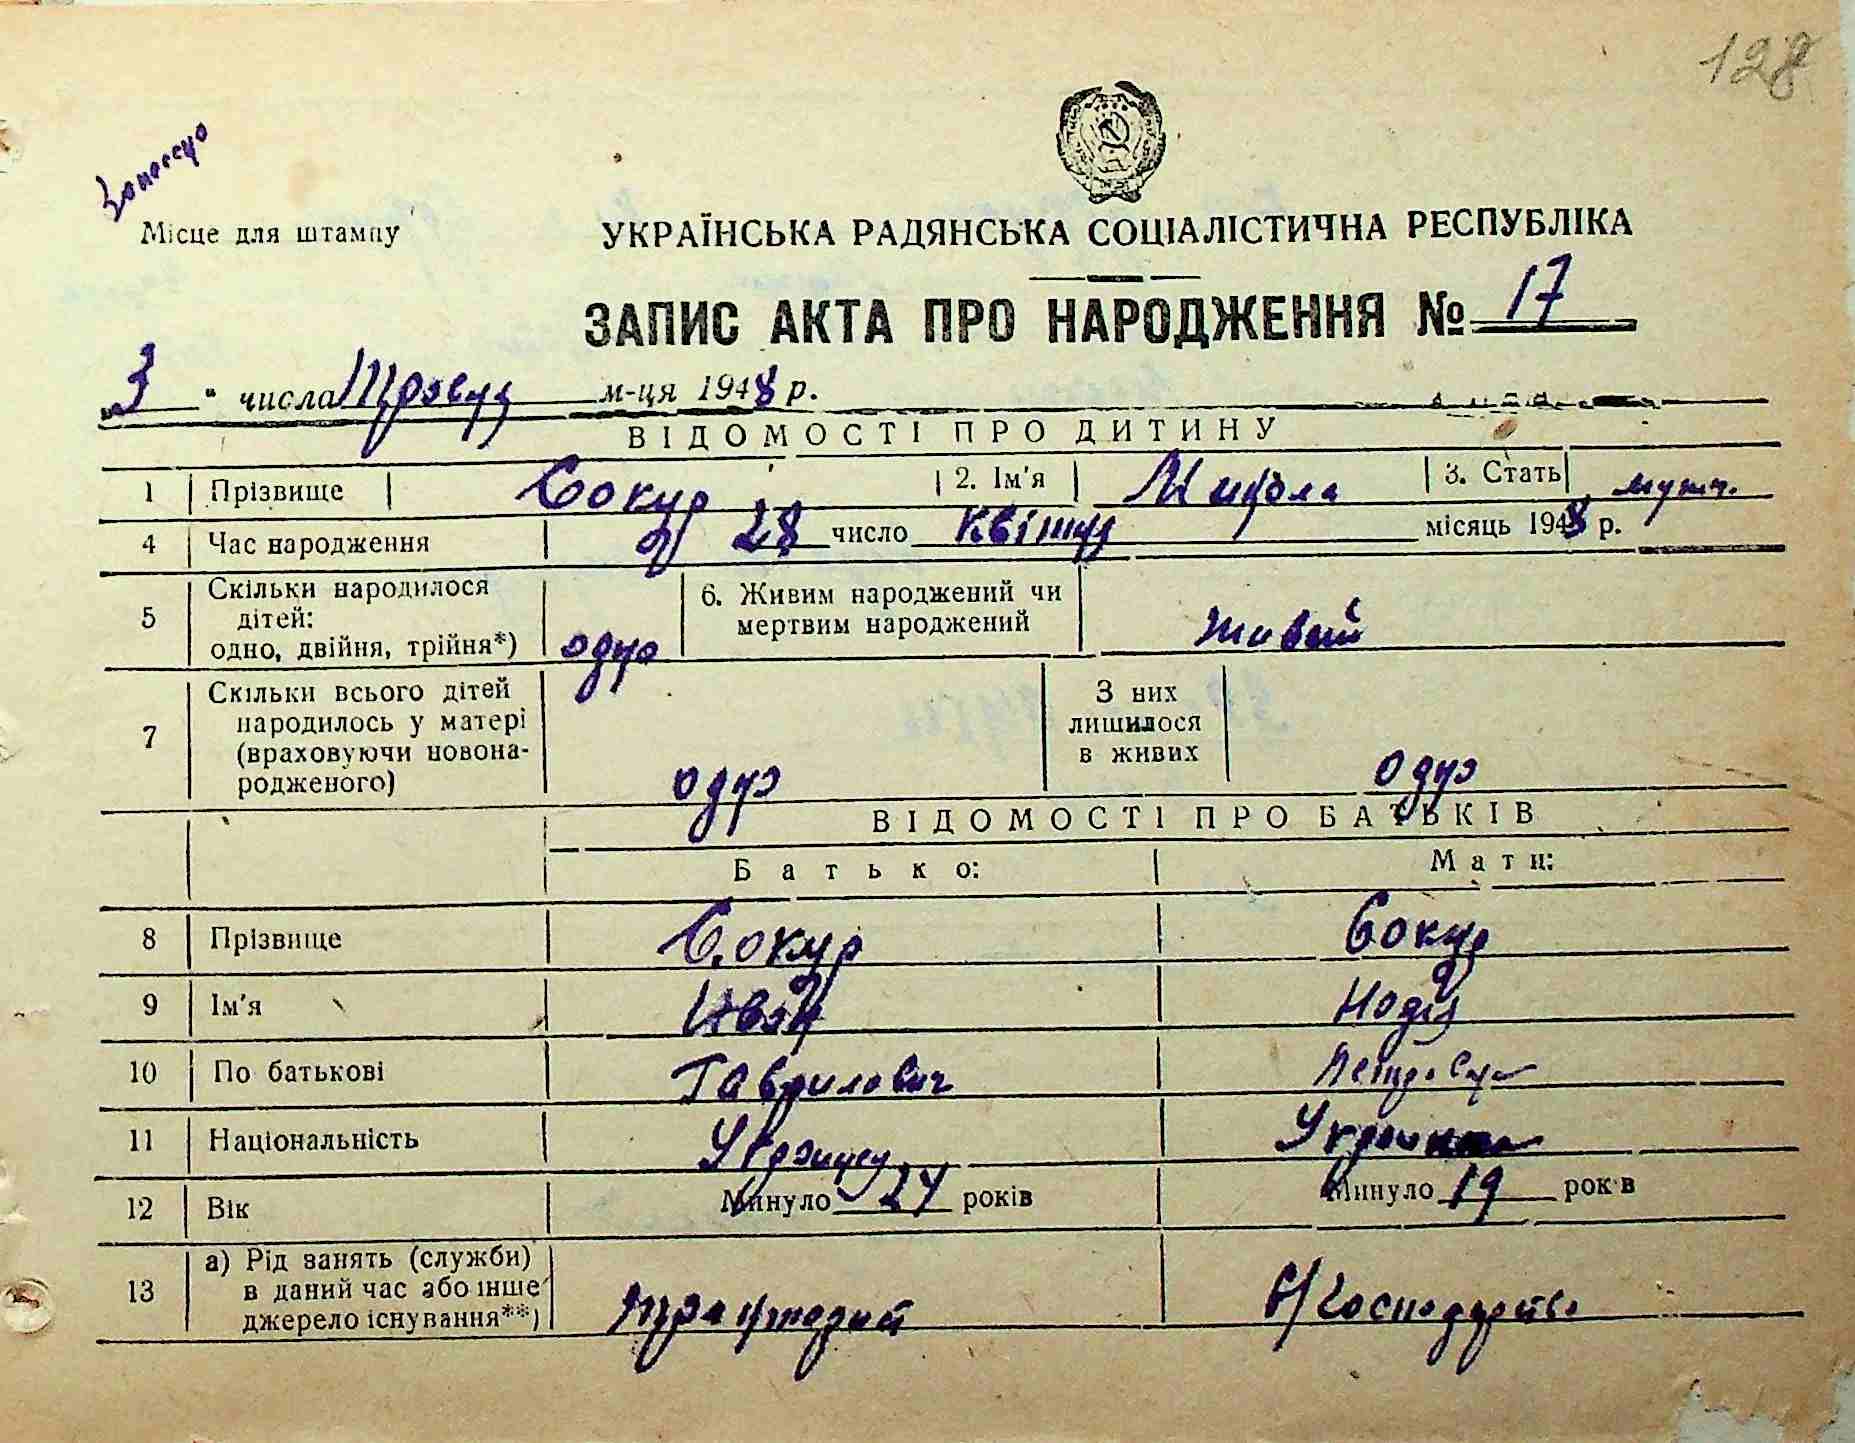 128
Місце для штампу
УКРАЇНСЬКА РАДЯНСЬКА СОЦІАЛІСТИЧНА РЕСПУБЛІКА
ЗАПИС АКТА ПРО НАРОДЖЕННЯ № 17
"3" числа Травня м-ця 1948 р.
ВІДОМОСТІ ПРО ДИТИНУ
1 Прізвище Сокур 2. Ім'я Микола 3. Стать муж.
4 Час народження 28 число Квітня місяць 1948 р.
5 Скільки народилося дітей: одно, двійня, трійня*) одно 6. Живим народжений чи мертвим народжений живий
7 Скільки всього дітей народилось у матері (враховуючи новонародженого) одно З них лишилося в живих одно
ВІДОМОСТІ ПРО БАТЬКІВ
Батько: Мати:
8 Прізвище Сокур Сокур
9 Ім'я Иван Надія
10 По батькові Гаврилович Петровна
11 Національність Українец Украінка
12 Вік Минуло 24 років Минуло 19 років
13 а) Рід занять (служби) в даний час або інше джерело існування**) с/господарство